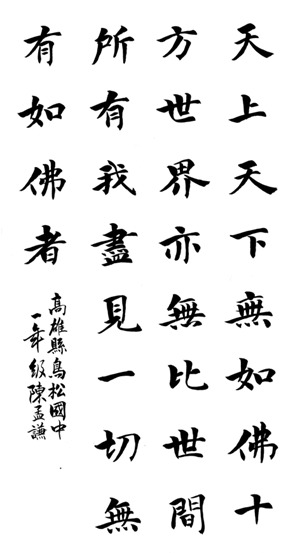 天上天下無如佛十
方世界亦無比世間
所有我盡見一切無
有如佛者
高雄縣鳥松國中
一年級陳孟謙